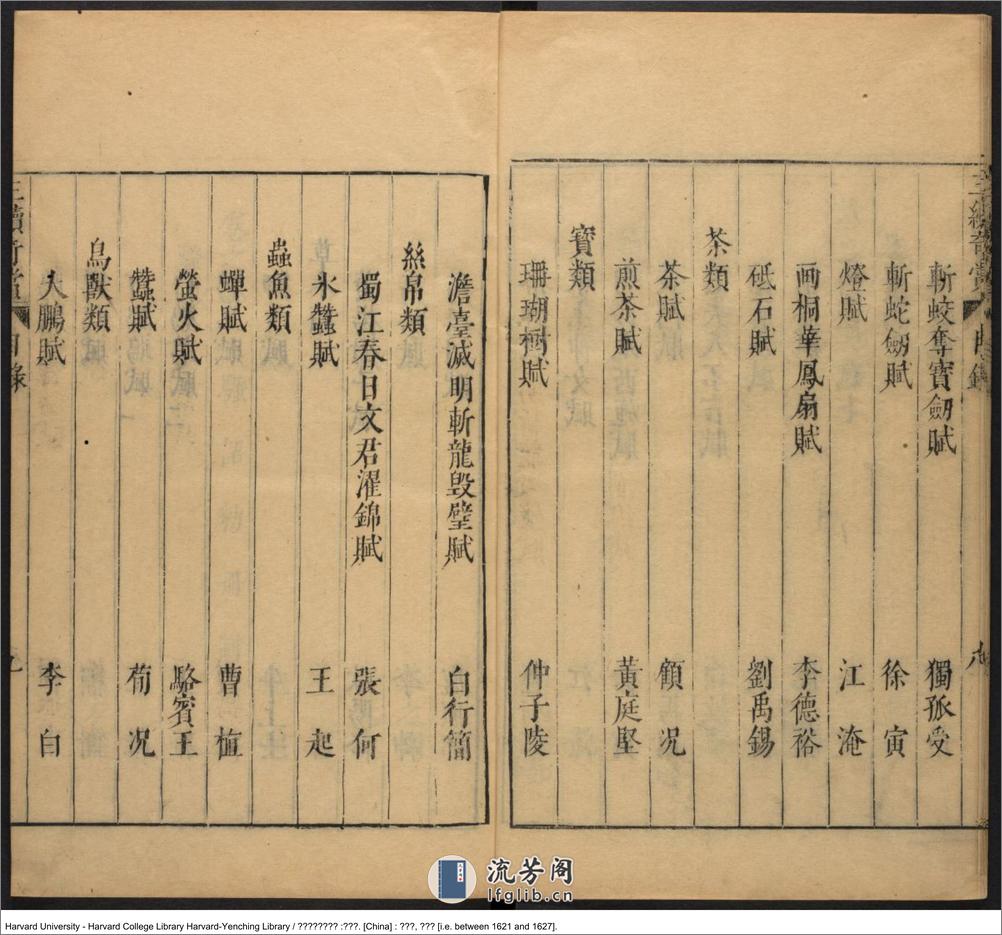 斬蛟奪寶劒賦 獨孤受
斬蛇劒賦 徐寅
燈賦 江淹
画桐華鳳扇賦 李德裕
砥石賦 劉禹錫
茶類
茶賦 顧况
煎茶賦 黃庭堅
寶類
珊瑚樹賦 仲子陵
澹臺滅明斬龍毀璧賦 白行簡
絲帛類
蜀江春日文君濯錦賦 張何
氷蠶賦 王起
蟲魚類
蟬賦 曹植
螢火賦 駱賓王
蠶賦 荀况
鳥獸類
大鵬賦 李白
流芳阁
lfglib.cn
Harvard University - Harvard College Library Harvard-Yenching Library / ???????? :???. [China] : ???, ??? [i.e. between 1621 and 1627].